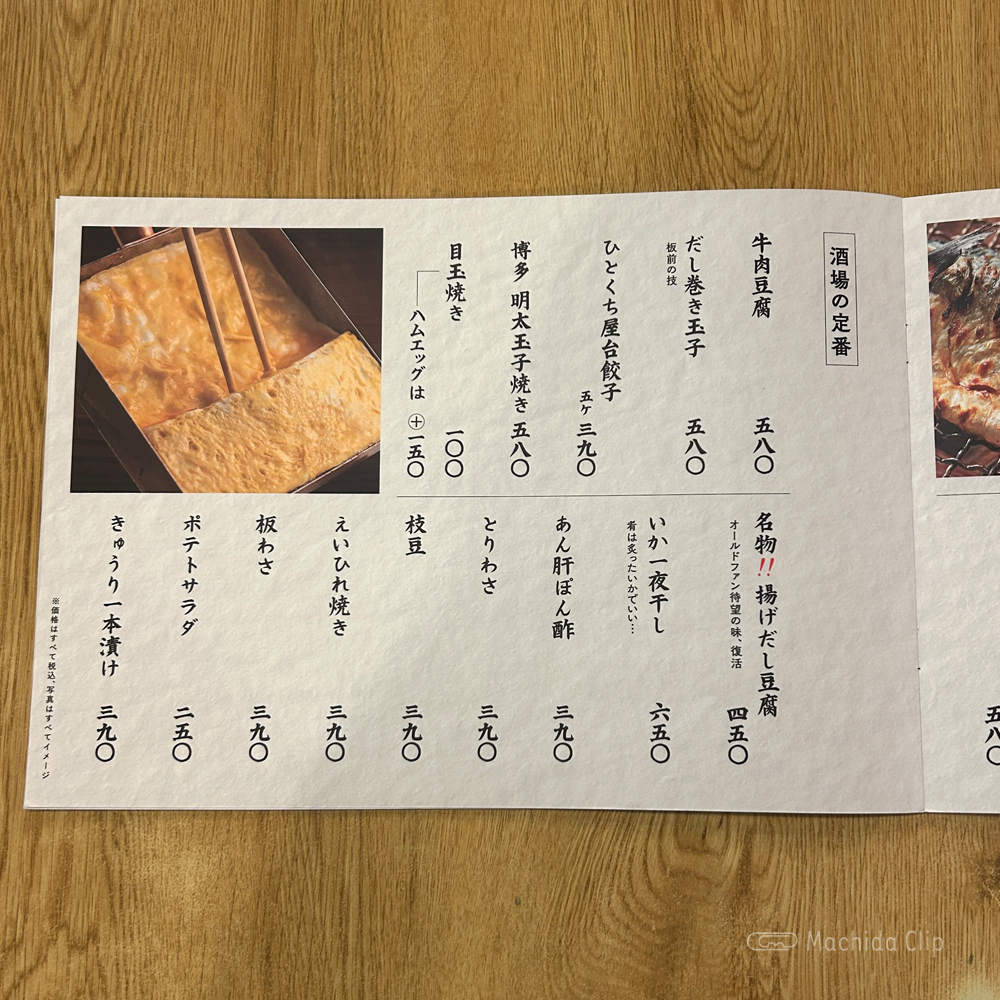 酒場の定番
牛肉豆腐 五八〇
だし巻き玉子 五八〇
板前の技
ひとくち屋台餃子 五ケ 三九〇
博多 明太玉子焼き 五八〇
目玉焼き 一〇〇
ハムエッグは ⊕一五〇
名物!!揚げだし豆腐 四五〇
オールドファン待望の味、復活
いか一夜干し 六五〇
肴は炙ったいかでいい…
あん肝ぽん酢 三九〇
とりわさ 三九〇
枝豆 三九〇
えいひれ焼き 三九〇
板わさ 三九〇
ポテトサラダ 二五〇
きゅうり一本漬け 三九〇
※価格はすべて税込、写真はすべてイメージ
五八〇
Machida Clip